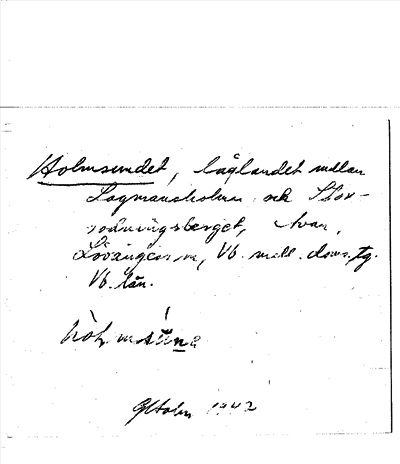 Holmsundet, låglandet mellan
Lagmansholmen och Stor-
rödningsberget, Avan,
Lövångers sn, Vb. mell. doms. tg.
Vb. län.
GHolm 1942